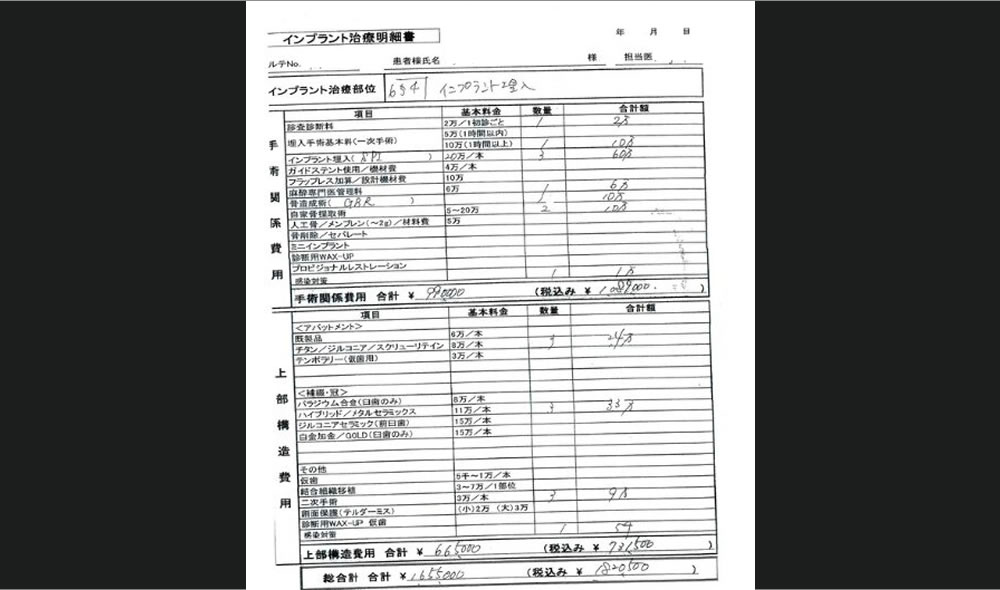 インプラント治療明細書
年 月 日
ルテNo. 患者様氏名 様 担当医
インプラント治療部位 654 インプラント埋入
手術関係費用
項目 基本料金 数量 合計額
診査診断料 2万/1初診ごと 1 2万
埋入手術基本料(一次手術) 5万(1時間以内)
10万(1時間以上) 1 10万
インプラント埋入( SPI ) 20万/本 3 60万
ガイドステント使用/機材費 4万/本
フラップレス加算/設計機材費 10万
麻酔専門医管理料 6万 1 6万
骨造成術( GBR ) 1 10万
自家骨採取術 5~20万 2 10万
人工骨/メンブレン(~2g)/材料費 5万
骨削除/セパレート
ミニインプラント
診断用WAX-UP
プロビジョナルレストレーション
感染対策 1 1万
手術関係費用 合計 ¥ 990,000 (税込み ¥ 1,089,000. )
上部構造費用
項目 基本料金 数量 合計額
<アバットメント>
既製品 6万/本
チタン/ジルコニア/スクリューリテイン 8万/本 3 24万
テンポラリー(仮歯用) 3万/本
<補綴・冠>
パラジウム合金(臼歯のみ) 8万/本
ハイブリッド/メタルセラミックス 11万/本 3 33万
ジルコニアセラミック(前臼歯) 15万/本
白金加金/GOLD(臼歯のみ) 15万/本
その他
仮歯 5千~1万/本
結合組織移植 3~7万/1部位
二次手術 3万/本 3 9万
創面保護(テルダーミス) (小)2万 (大)3万
診断用WAX-UP 仮歯
感染対策 1
上部構造費用 合計 ¥ 665,000 (税込み ¥ 731,500 )
総合計 合計 ¥ 1,655,000 (税込み ¥ 1,820,500 )